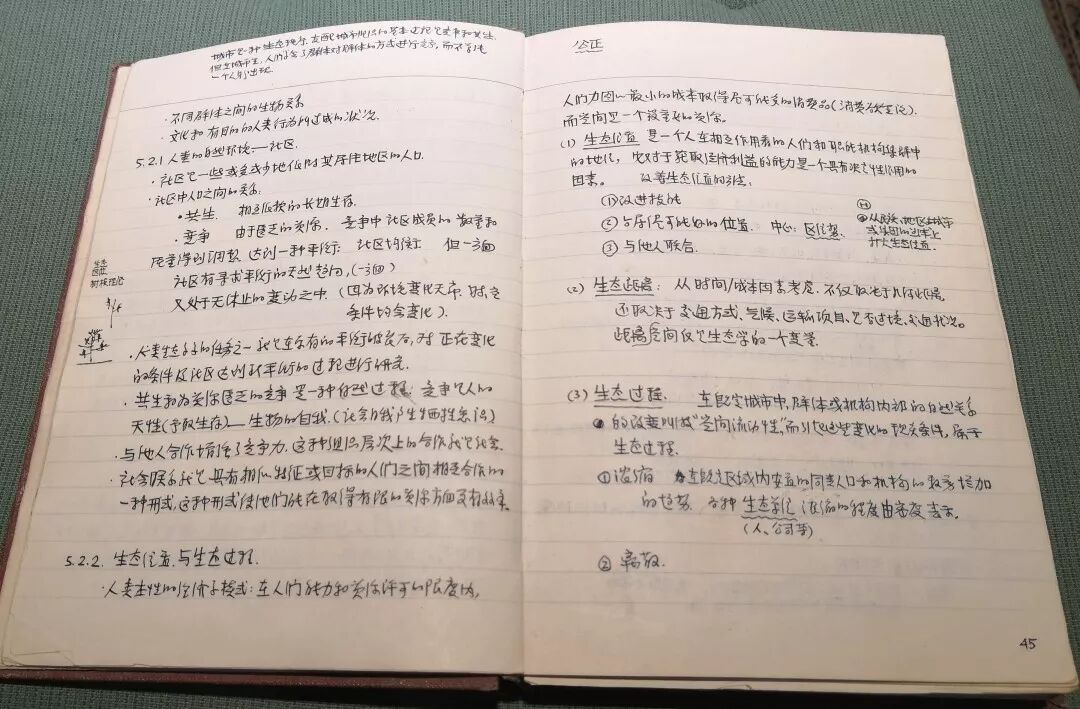 城市是一种生态秩序,支配城市组织的基本过程是竞争和共生.
但在城市里,人们会以群体对群体的方式进行竞争,而不是
一个人
·不同群体之间的生物关系
·文化和有目的的人类行为所造成的状况.
5.2.1 人类的自然环境——社区.
·社区是一些或多或少地依附某居住地区的人口.
·社区中人口之间的关系:
•共生. 相互依赖的长期生存.
•竞争 由于匮乏的资源. 竞争中社区成员的数量和
质量得到调整,达到一种平衡; 社区均衡 但一方面
社区有寻求平衡的天然趋向,(一方面)
又处于无休止的变动之中.(因为环境变化无常.
条件均会变化).
生态
树枝理论
·人类生态学的任务之一就是在原有的平衡被破坏后,对正在变化
的条件及社区达到新平衡的过程进行研究.
·共生和为资源匮乏的竞争是一种自然过程; 竞争是人的
天性(争取生存)——生物的自我.(社会自我产生牺牲意识)
·与他人合作增强了竞争力.这种组织层次上的合作就是社会.
社会联系就是具有相似特征或目标的人们之间相互合作的
一种形式,这种形式使他们能在取得有限的资源方面更有效率.
5.2.2. 生态位置与生态过程.
·人类本性的经济学模式:在人们能力和资源许可的限度内,
公正
人们力图以最小的成本取得尽可能多的消费品(消费效益论).
而空间是一个最重要的资源.
(1) 生态位置 是一个人在相互作用着的人们和职能机构集群中
的地位, 它对于获取经济利益的能力是一个具有决定性作用的
因素。 改善生态位置的方法:
①改进技能
②占据尽可能好的位置. 中心: 区位势.
③与他人联合.
从民族、地区、城市
扩大生态位置.
(2) 生态距离: 从时间/成本因素考虑.不仅取决于几何距离,
还取决于交通方式、气候、运输项目、是否过境、交通状况。
距离空间仅是生态学的一个变量.
(3) 生态过程. 在既定城市中,群体或机构内部的自然关系
的改变叫做"空间流动性",而引起这些变化的现实条件,属于
生态过程.
①浓缩 在既定区域内安置的同类人口和机构的数量增加
的趋势. 各种生态单位浓缩的程度由密度表示.
(人、公司等)
②离散.
45